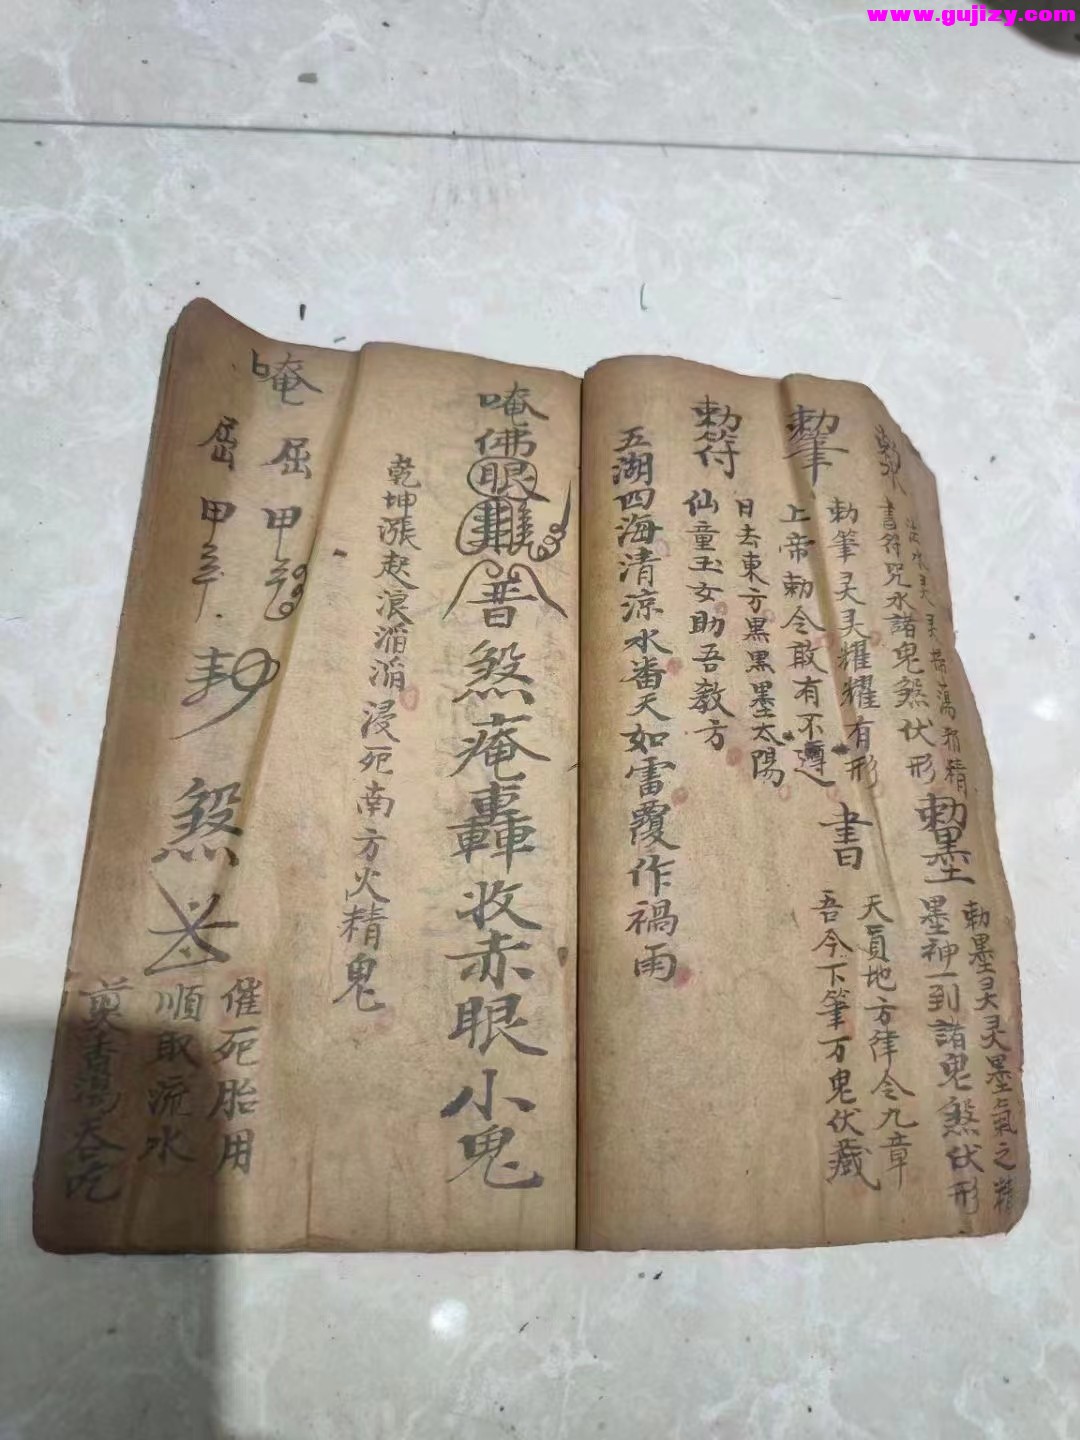 www.gujizy.com
勅水
法水灵灵掃蕩邪精
書符咒水諸鬼煞伏形
勅墨
勅墨灵灵墨氣之精
墨神一到諸鬼煞伏形
勅筆
勅筆灵灵耀耀有形
上帝勅令敢有不遵
書
天員地方律令九章
吾今下筆万鬼伏藏
勅符
日去東方黒黒墨太陽
仙童玉女助吾教方
五湖四海清涼水番天如雷覆作禍雨
唵佛眼
普煞庵轟收赤眼小鬼
乾坤漲起浪滔滔浸死南方火精鬼
唵屈甲
屈甲
煞
催死胎用
順取流水
煎香湯吞吃